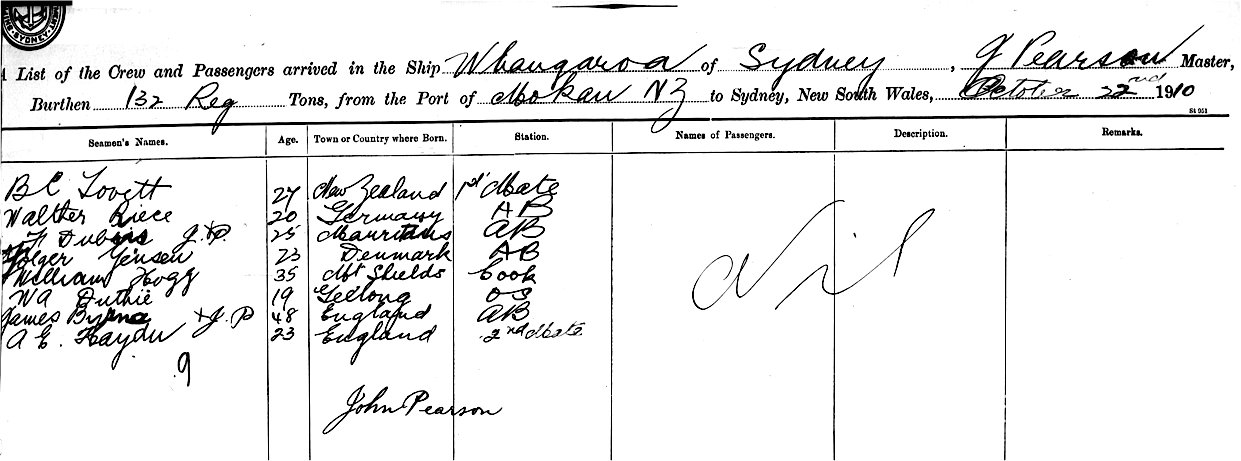 SYDNEY
A List of the Crew and Passengers arrived in the Ship Whangaroa of Sydney, J Pearson Master,
Burthen 132 Reg Tons, from the Port of Mokau NZ to Sydney, New South Wales, October 22nd 1910
St 951
Seamen's Names. Age. Town or Country where Born. Station. Names of Passengers. Description. Remarks.
B C Lovett 27 New Zealand 1st Mate
Walther Riece 20 Germany AB
F Dubois J.P. 25 Mauritius AB
Holger Jensen 23 Denmark AB
William Hogg 35 Nth Shields Cook
WA Duthie 19 Geelong OS
James Byrne + J.P 48 England AB
A E. Haydn 23 England 2nd Mate
Nil
9
John Pearson